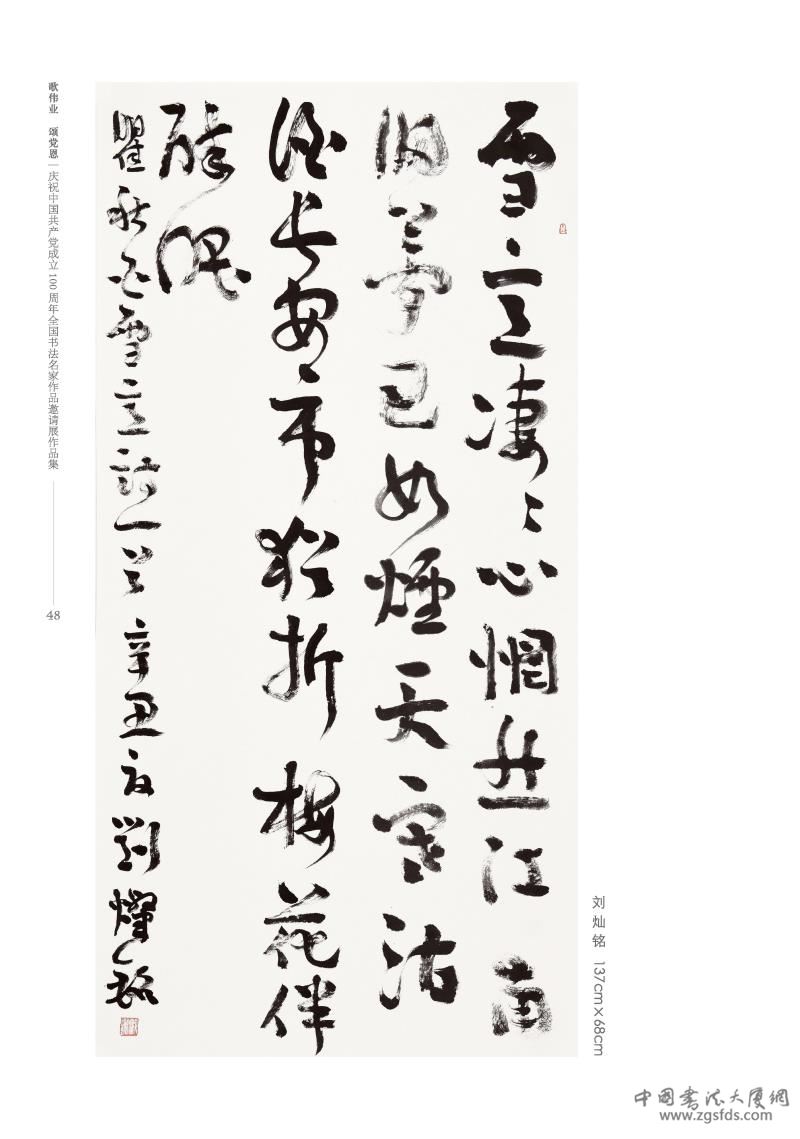 雪意凄凄心惘然江南
旧夢已如煙天寒沽
酒长安市犹折梅花伴
醉眠
瞿秋白雪意诗一首 辛丑夏 劉燦銘
歌伟业 颂党恩 | 庆祝中国共产党成立100周年全国书法名家作品邀请展作品集
48
刘灿铭 137cm×68cm
中国书法大厦網
www.zgsfds.com